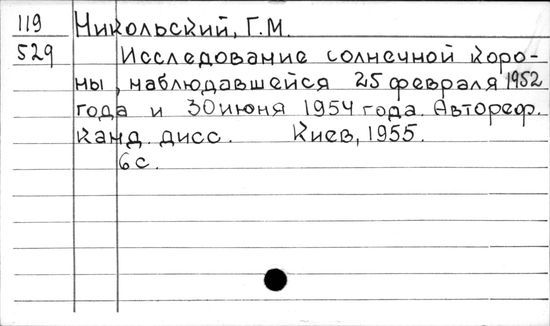 119 Никольский, Г.М.
529 Исследование солнечной коро-
ны, наблюдавшейся 25 февраля 1952
года и 30 июня 1954 года. Автореф.
Канд. дисс. Киев, 1955.
6 с.